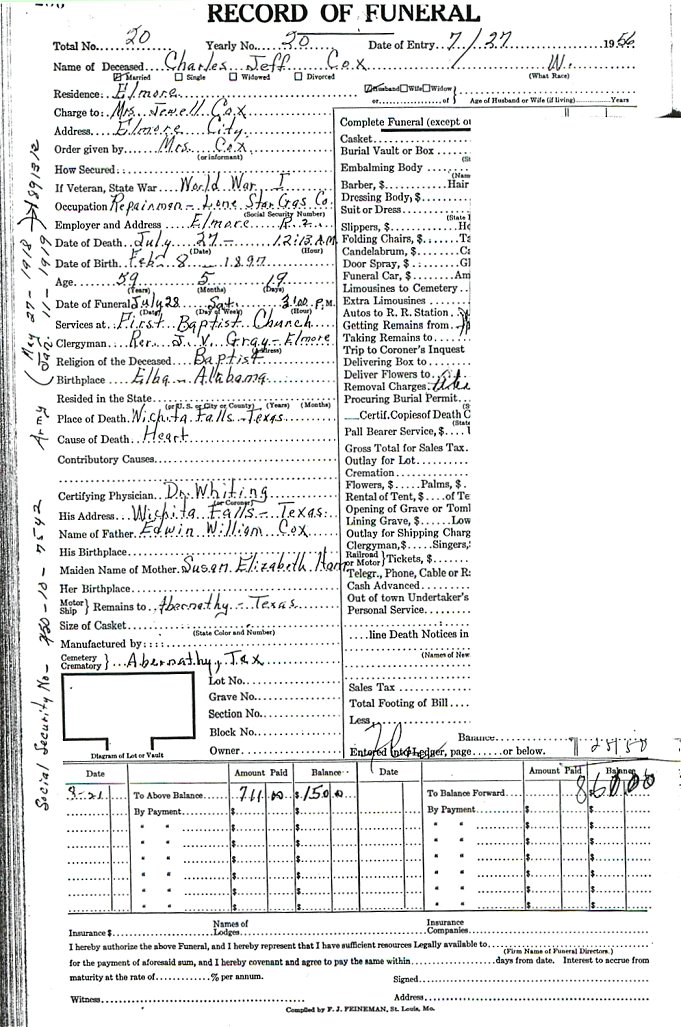 RECORD OF FUNERAL
Total No. 20 Yearly No. 20 Date of Entry 7/27 1956
Name of Deceased Charles Jeff Cox W.
Married Single Widowed Divorced (What Race)
Residence: Elmore Husband Wife Widow
or of Age of Husband or Wife (if living) Years
Charge to: Mrs. Jewell Cox
Address Elmore City
Order given by Mrs. Cox
(or informant)
How Secured:
If Veteran, State War World War I
Occupation Repairman - Lone Star Gas Co.
(Social Security Number)
Employer and Address Elmore R. 2.
Date of Death July 27 - 12:13 A.M.
(Date) (Hour)
Date of Birth Feb. 8 - 1897
Age 59 5 19
(Years) (Months) (Days)
Date of Funeral July 28 Sat. 3:00 P.M.
(Date) (Day of Week) (Hour)
Services at First Baptist Church
Clergyman Rev. J. V. Gray - Elmore
(Address)
Religion of the Deceased Baptist
Birthplace Elba - Alabama
Resided in the State
(or U. S. or City or County) (Years) (Months)
Place of Death Wichita Falls - Texas
Cause of Death Heart
Contributory Causes
Certifying Physician Dr. Whiting
(or Coroner)
His Address Wichita Falls - Texas
Name of Father Edwin William Cox
His Birthplace
Maiden Name of Mother Susan Elizabeth
Her Birthplace
Motor Ship } Remains to Abernathy - Texas
Size of Casket
(State Color and Number)
Manufactured by
Cemetery Crematory } Abernathy, Tex
Lot No.
Grave No.
Section No.
Block No.
Owner
Diagram of Lot or Vault
Social Security No - 450-10-7542 Army (May 27-1918 → 1891312
Jan. 11-1919)
Complete Funeral (except ou
Casket
Burial Vault or Box
(St
Embalming Body
(Nam
Barber, $ Hair
Dressing Body, $
Suit or Dress
(State
Slippers, $ Ho
Folding Chairs, $ Ta
Candelabrum, $ Ca
Door Spray, $ Gl
Funeral Car, $ Am
Limousines to Cemetery
Extra Limousines
Autos to R. R. Station
Getting Remains from
Taking Remains to
Trip to Coroner's Inquest
Delivering Box to
Deliver Flowers to
Removal Charges
Procuring Burial Permit
(S
Certif. Copies of Death C
(State
Pall Bearer Service, $
Gross Total for Sales Tax
Outlay for Lot
Cremation
Flowers, $ Palms, $
Rental of Tent, $ of Te
Opening of Grave or Tomb
Lining Grave, $ Low
Outlay for Shipping Charg
Clergyman, $ Singers,
Railroad or Motor } Tickets, $
Telegr., Phone, Cable or Ra
Cash Advanced
Out of town Undertaker's
Personal Service
line Death Notices in
(Names of New
Sales Tax
Total Footing of Bill
Less
Balance
Entered into Ledger, page or below.
Date Amount Paid Balance Date Amount Paid Balance
8-21 To Above Balance 711.00 $ 150.00 To Balance Forward $ 860.00
By Payment $ $ By Payment $ $
" " $ $ " " $ $
" " $ $ " " $ $
" " $ $ " " $ $
" " $ $ " " $ $
" " $ $ " " $ $
Insurance $ Names of Lodges Insurance Companies
I hereby authorize the above Funeral, and I hereby represent that I have sufficient resources Legally available to
(Firm Name of Funeral Directors.)
for the payment of aforesaid sum, and I hereby covenant and agree to pay the same within days from date. Interest to accrue from
maturity at the rate of % per annum. Signed
Witness Address
Compiled by F. J. FEINEMAN, St. Louis, Mo.